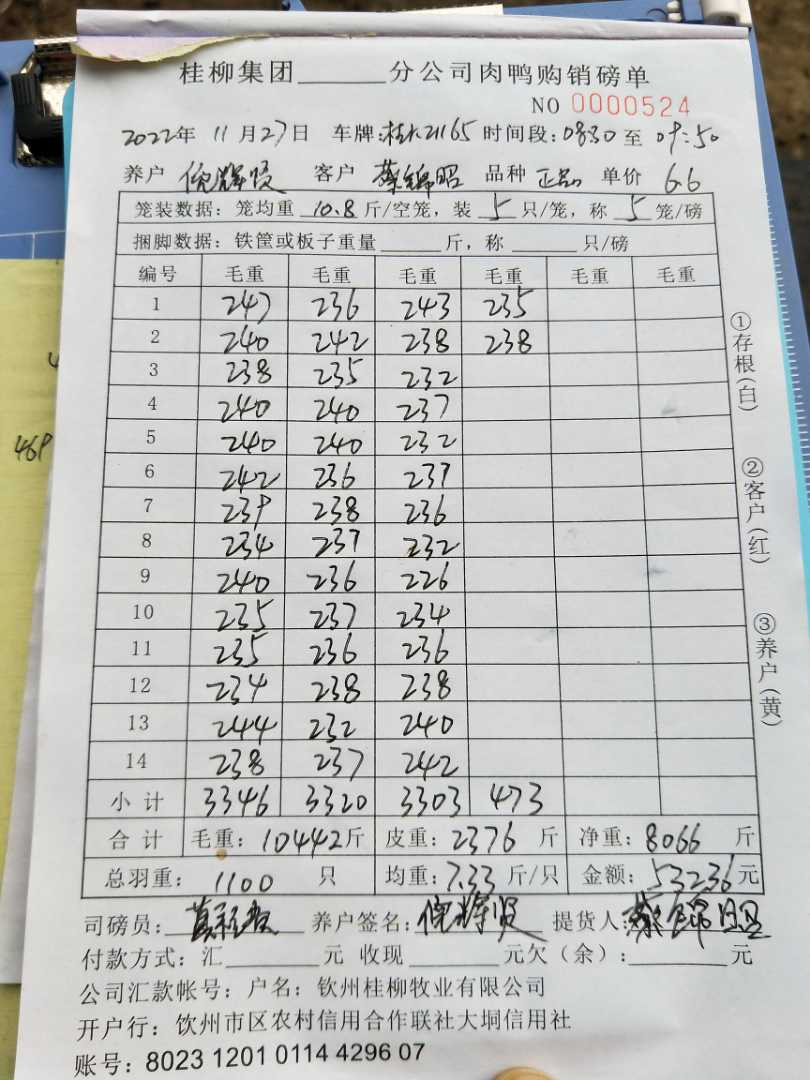 桂柳集团______分公司肉鸭购销磅单
NO 0000524
2022年 11月27日 车牌:桂K21165 时间段:0830 至 09:50
养户 倪辉贤 客户 蔡锦昭 品种 正品 单价 6.6
笼装数据:笼均重 10.8 斤/空笼,装 5 只/笼,称 5 笼/磅
捆脚数据:铁筐或板子重量______斤,称______只/磅
编号 毛重 毛重 毛重 毛重 毛重 毛重
1 247 236 243 235
2 240 242 238 238
3 238 235 232
4 240 240 237
5 240 240 232
6 242 236 237
7 239 238 236
8 234 237 232
9 240 236 226
10 235 237 234
11 235 236 236
12 234 238 238
13 244 232 240
14 238 237 242
小计 3346 3320 3303 473
合计 毛重:10442斤 皮重:2376 斤 净重:8066 斤
总羽重: 1100 只 均重:7.33 斤/只 金额:53236元
司磅员: 养户签名:倪辉贤 提货人:蔡锦昭
付款方式:汇______元 收现______元欠(余):______元
公司汇款帐号:户名:钦州桂柳牧业有限公司
开户行:饮州市区农村信用合作联社大垌信用社
账号:8023 1201 0114 4296 07
①存根(白)
②客户(红)
③养户(黄)
469